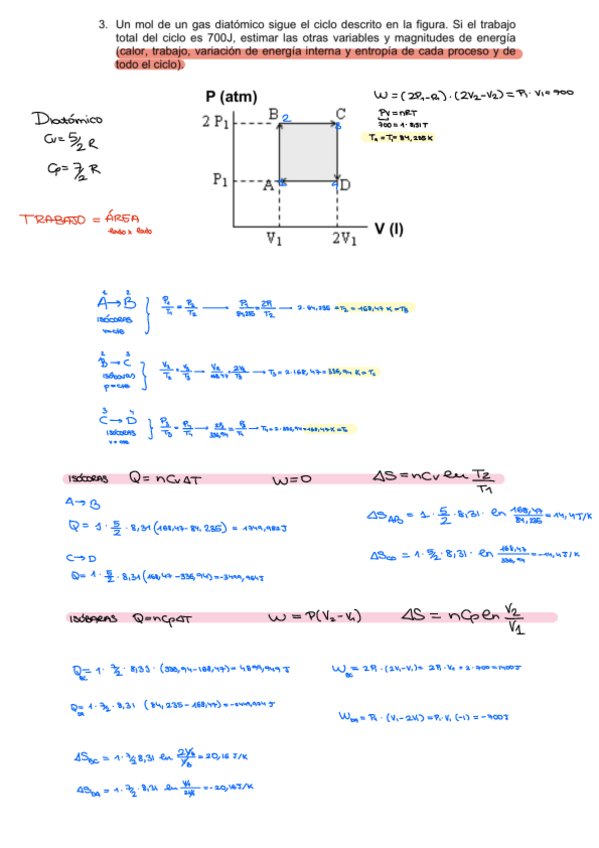 3. Un mol de un gas diatómico sigue el ciclo descrito en la figura. Si el trabajo
total del ciclo es 700J, estimar las otras variables y magnitudes de energía
(calor, trabajo, variación de energía interna y entropía de cada proceso y de
todo el ciclo).
P (atm)
W = (2P₁-P₁) · (2V₂-V₂) = P₁ · V₁ = 700
PV = nRT
700 = 1 · 8,31 T
T₁ = 84,235 K
Diatómico
Cv = 5/2 R
Cp = 7/2 R
TRABAJO = ÁREA
lado x lado
2 P₁
B 2
C 3
P₁
A
D
V₁
2V₁
V (l)
1 2
A → B
ISÓCORAS
V = cte
P₁/T₁ = P₂/T₂ → P₁/84,235 = 2P₁/T₂ → 2 · 84,235 = T₂ = 168,47 K = TB
2 3
B → C
ISÓBARAS
p = cte
V₂/T₂ = V₃/T₃ → → T₃ = 2 · 168,47 = 336,94 K = Tc
3 4
C → D
ISÓCORAS
V = cte
P₃/T₃ = P₄/T₄ →
ISÓCORAS Q = nCvΔT W = 0 ΔS = nCv ln T2/T1
A → B
Q = 1 · 5/2 · 8,31 (168,47 - 84,235) = 1749,982 J
ΔS AB = 1 · 5/2 · 8,31 · ln 168,47/84,235 = 14,4 J/K
C → D
Q = 1 · 5/2 · 8,31 (168,47 - 336,94) = -3499,964 J
ΔS CD = 1 · 5/2 · 8,31 · ln 168,47/336,94 = -14,4 J/K
ISÓBARAS Q = nCpΔT W = P(V₂ - V₁) ΔS = nCp ln V2/V1
Q BC = 1 · 7/2 · 8,31 · (336,94 - 168,47) = 4899,949 J
W BC = 2P₁ · (2V₁ - V₁) = 2P₁ · V₁ = 2 · 700 = 1400 J
Q DA = 1 · 7/2 · 8,31 (84,235 - 168,47) =
W DA = P₁ · (V₁ - 2V₁) = P₁ · V₁ (-1) = -700 J
ΔS BC = 1 · 7/2 8,31 ln = 20,16 J/K
ΔS DA = 1 · 7/2 · 8,31 ln = -20,16 J/K